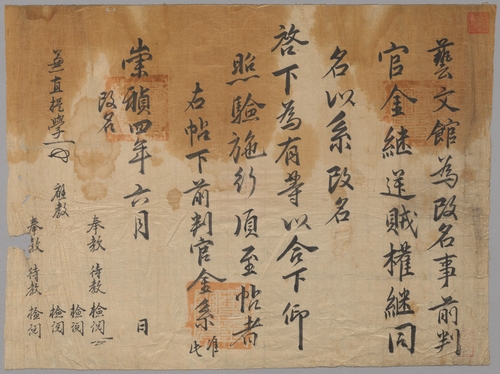 藝文館為改名事前判
官金繼送賊權繼同
名以系改名
啓下為有等以合下仰
照驗施行須至帖者
右帖下前判官金系 准此
崇禎四年六月 日
改名
兼直提學
應教
奉教 待教 檢閱
檢閱
奉教 待教 檢閱
檢閱